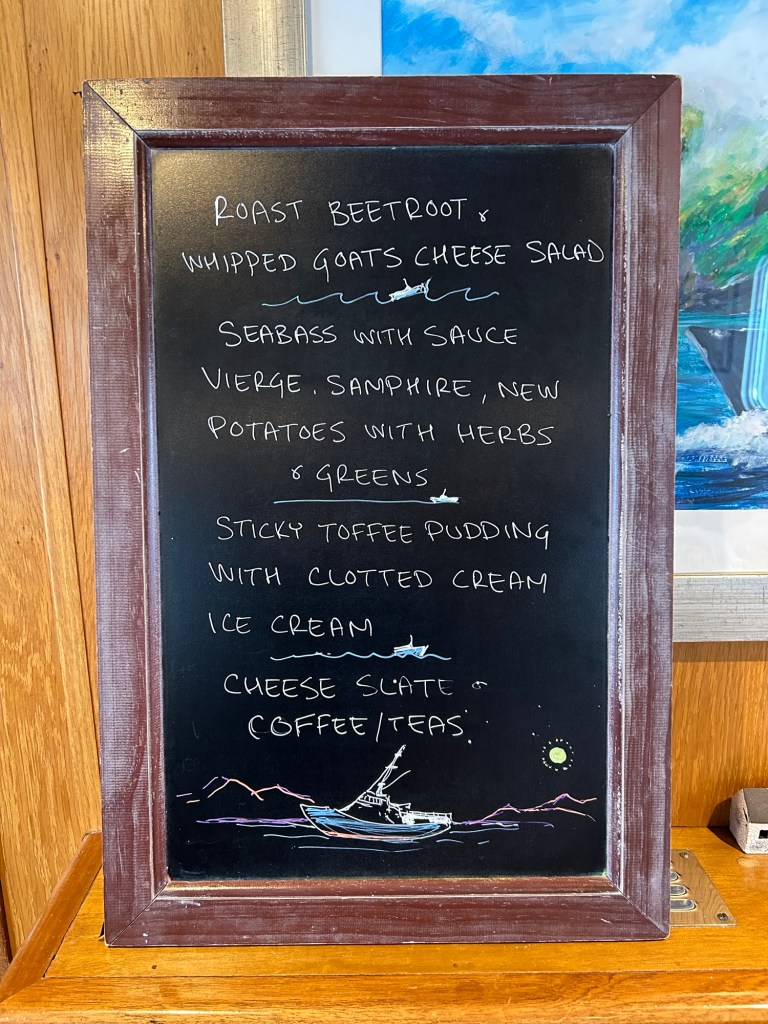 ROAST BEETROOT &
WHIPPED GOATS CHEESE SALAD
SEABASS WITH SAUCE
VIERGE. SAMPHIRE, NEW
POTATOES WITH HERBS
& GREENS
STICKY TOFFEE PUDDING
WITH CLOTTED CREAM
ICE CREAM
CHEESE SLATE &
COFFEE/TEAS.